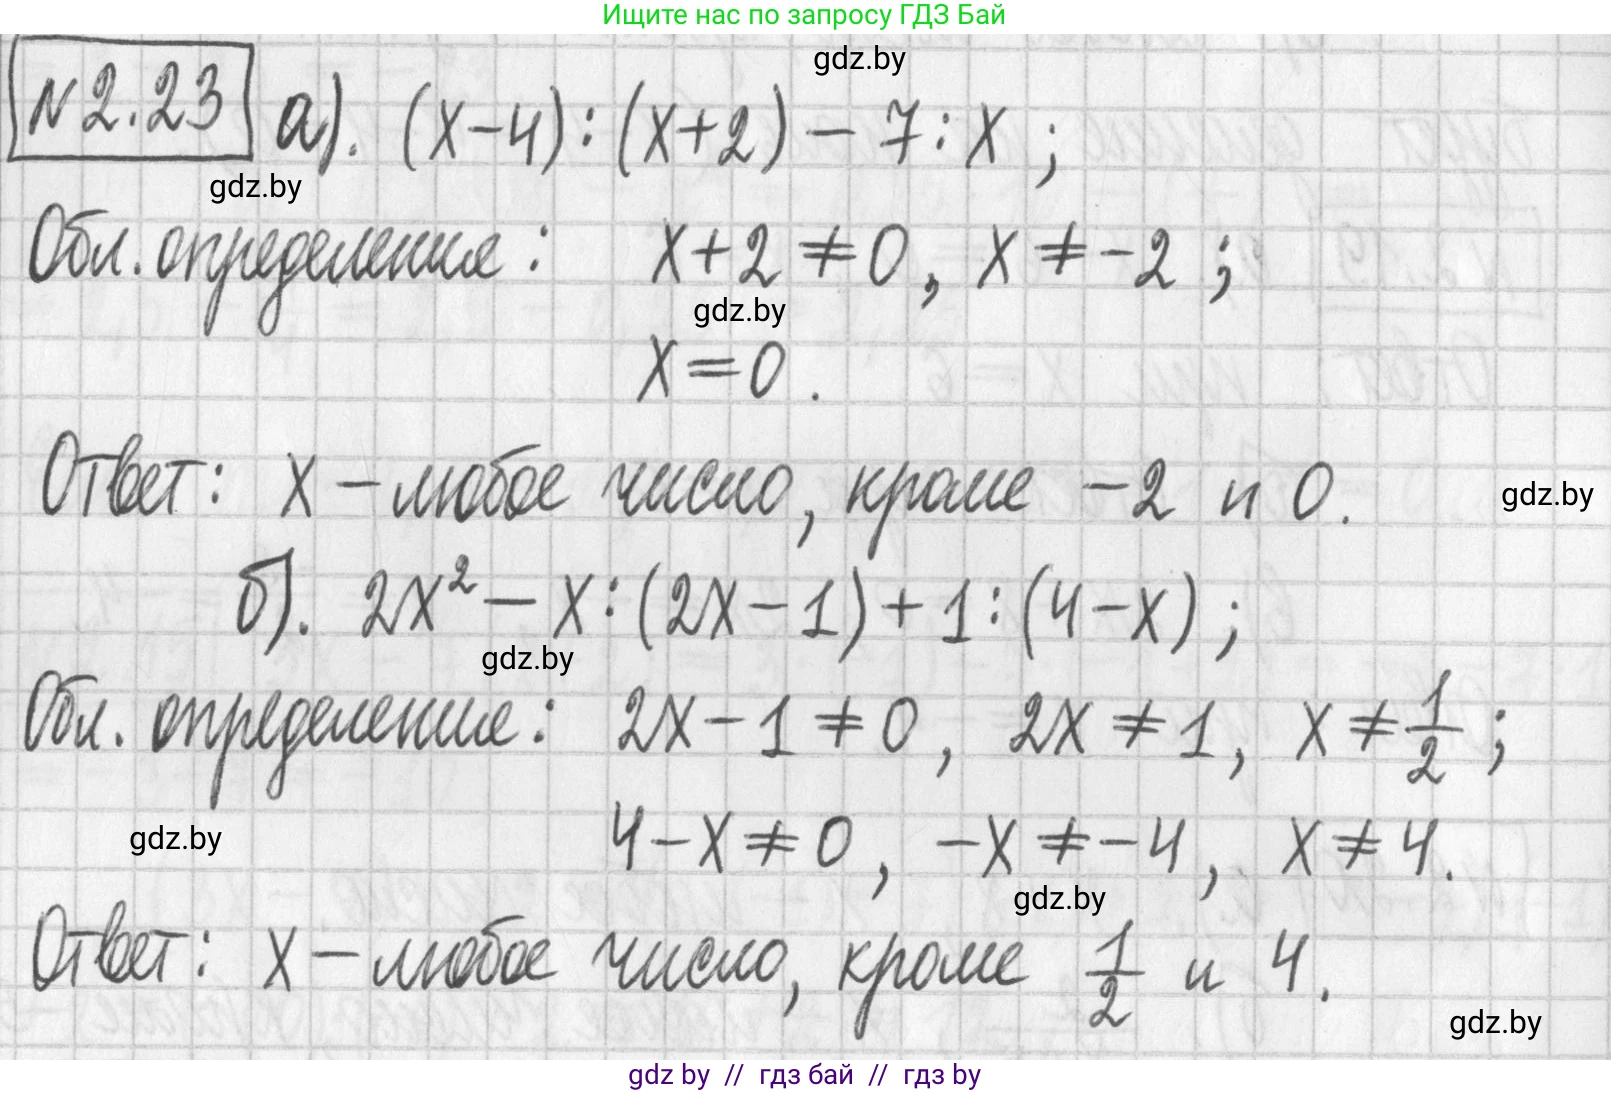 Ищите нас по запросу ГДЗ Бай
gdz.by
N2.23 а). (x-4):(x+2)-7:x;
gdz.by
Обл. определения: x+2≠0, x≠-2;
gdz.by
x=0.
Ответ: x-любое число, кроме -2 и 0.
gdz.by
б). 2x²-x:(2x-1)+1:(4-x);
gdz.by
Обл. определения: 2x-1≠0, 2x≠1, x≠1/2;
gdz.by
4-x≠0, -x≠-4, x≠4.
gdz.by
Ответ: x-любое число, кроме 1/2 и 4.
gdz.by
gdz by // гдз бай // гдз by